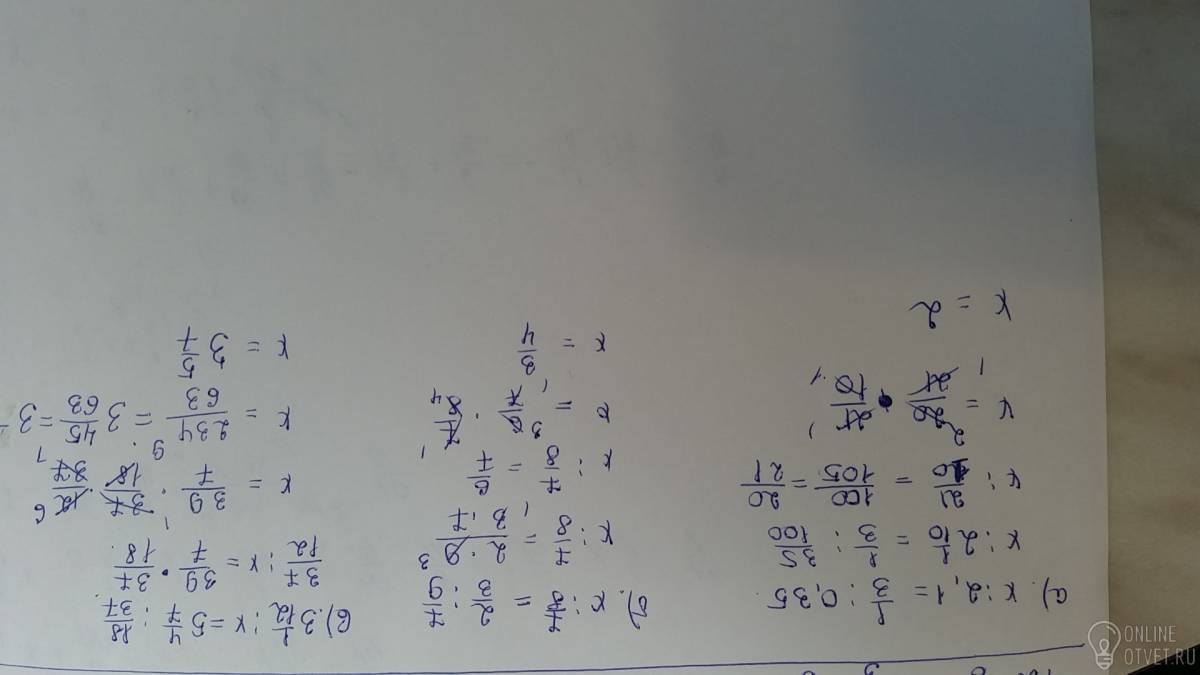 а). x : 2,1 = 1/3 : 0,35
x : 2 1/10 = 1/3 : 35/100
x : 21/10 = 100/105 = 20/21
x = 20/21 · 21/10
x = 2
б). x : 7/8 = 2/3 : 7/9
x : 7/8 = 2·9/3·7
x : 7/8 = 6/7
x = 6/7 · 7/8
x = 3/4
в). 3 1/12 : x = 5 4/7 : 18/37
37/12 : x = 39/7 · 37/18
x = 39/7 · 37/18 · 12/37
x = 234/63 = 3 45/63 = 3
x = 3 5/7
ONLINE
OTVET.RU